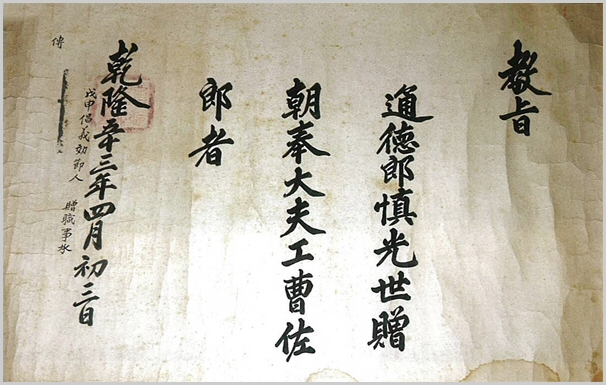 教旨
通德郎慎光世贈
朝奉大夫工曹佐
郎者
乾隆五十三年四月初三日
戊申倡義効節人
贈職事承
傳